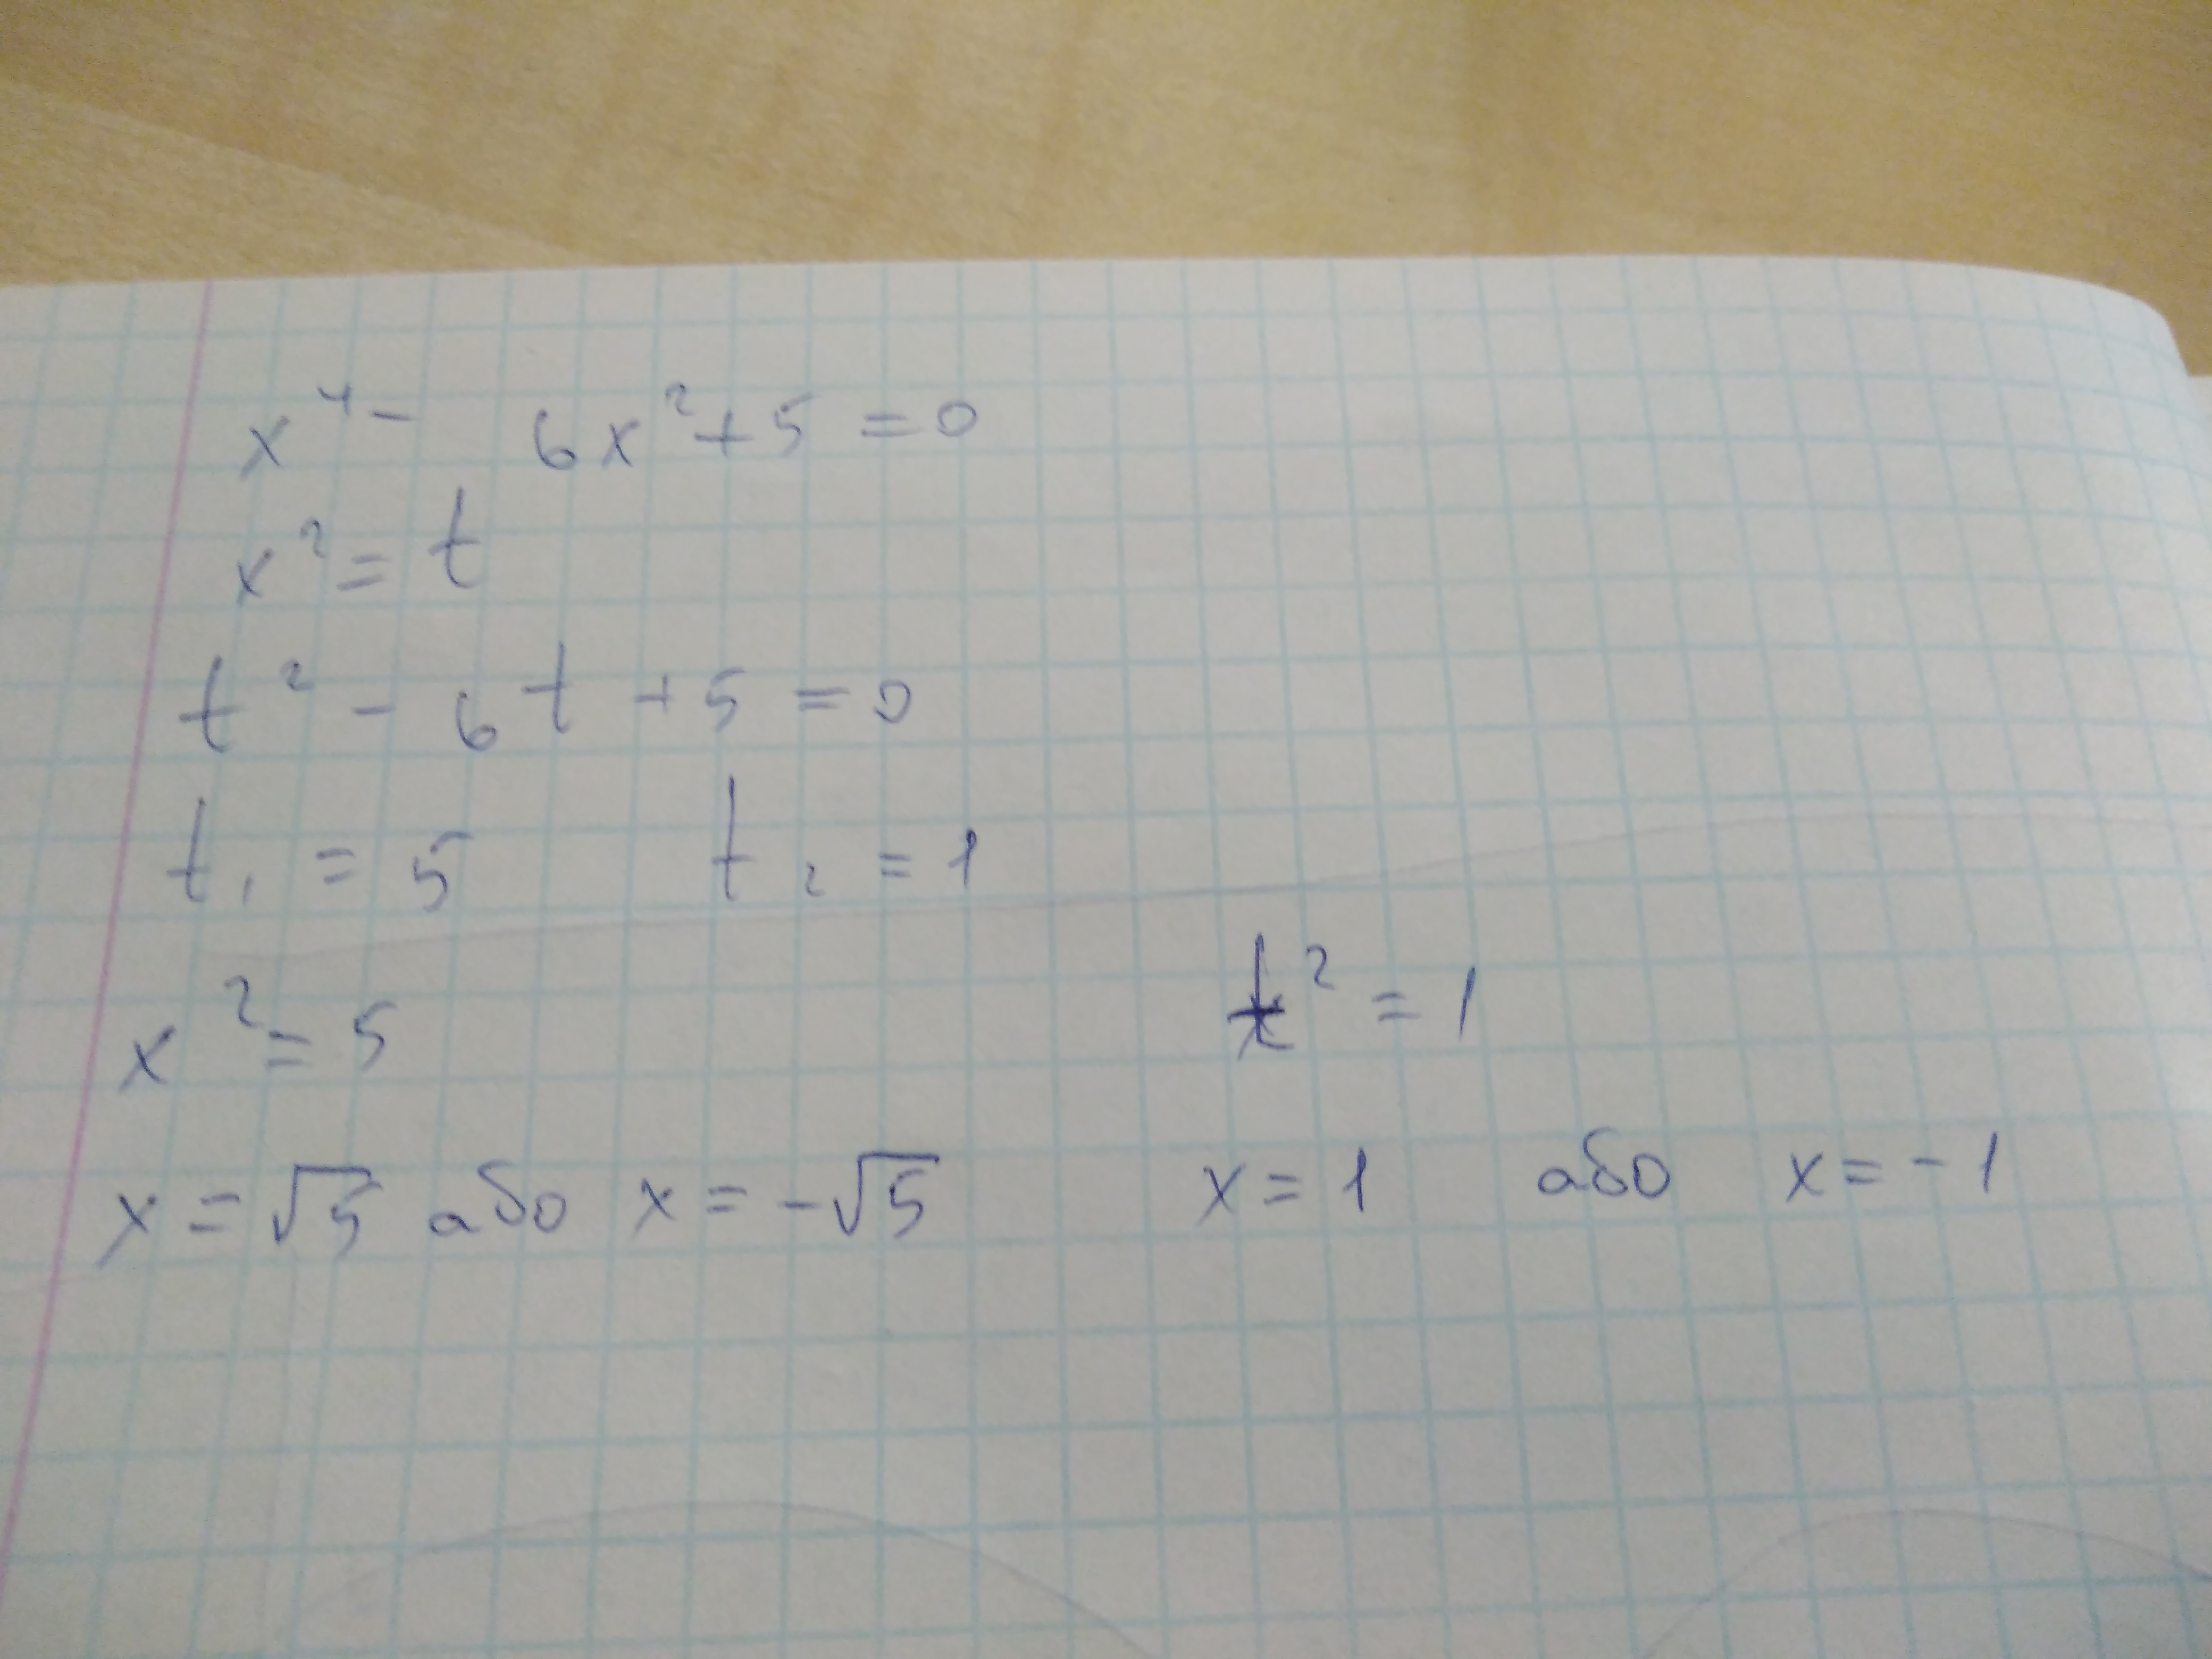 x⁴ - 6x² + 5 = 0
x² = t
t² - 6t + 5 = 0
t₁ = 5 t₂ = 1
x² = 5 x² = 1
x = √5 або x = -√5 x = 1 або x = -1